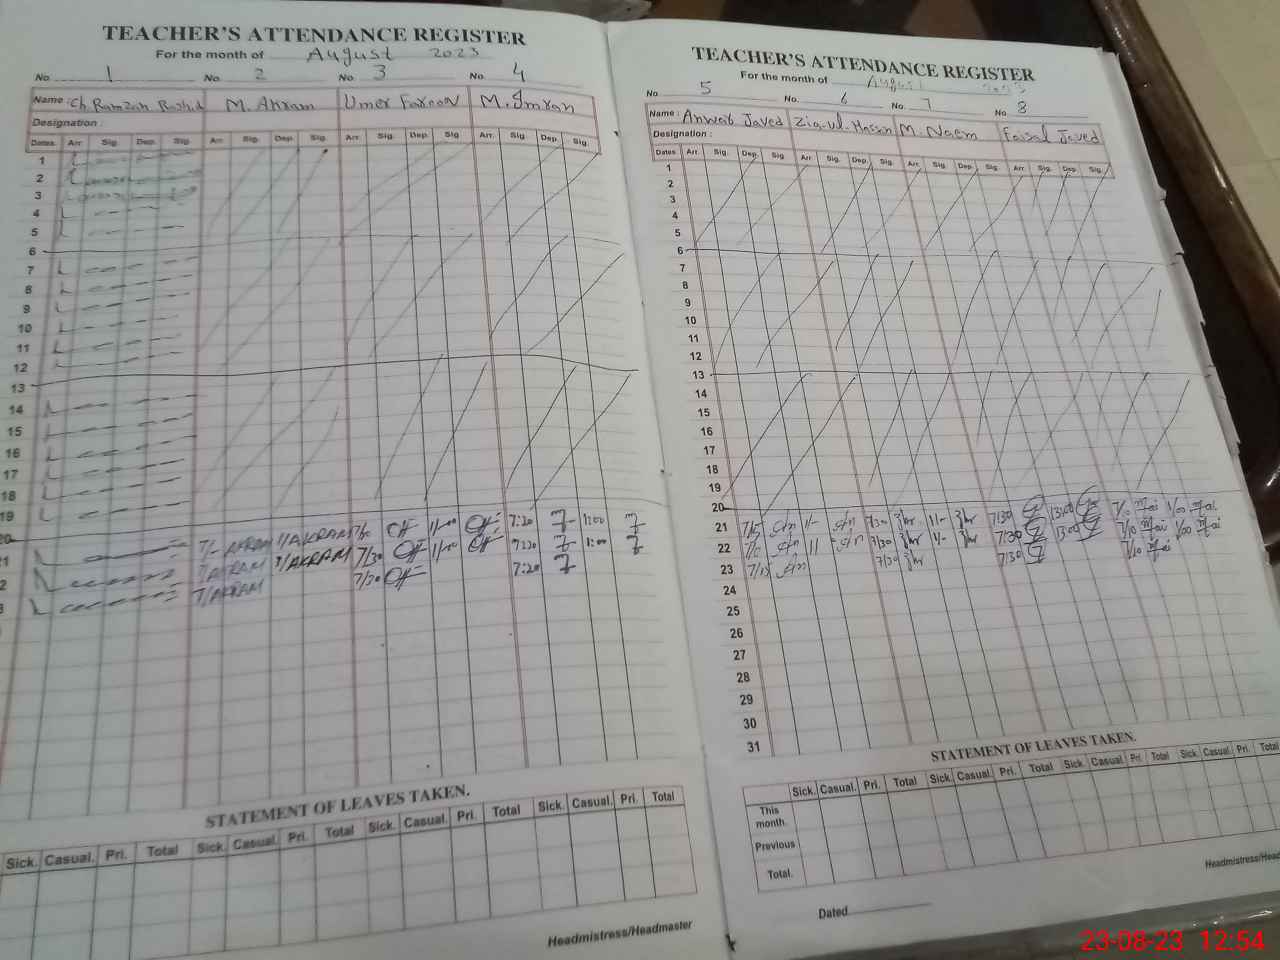 TEACHER'S ATTENDANCE REGISTER
For the month of August 2023
No. 1 No. 2 No. 3 No. 4
Name: Ch. Ramzan Rashid M. Akram Umer Farooq M. Imran
Designation:
Dates. Arr. Sig. Dep. Sig. Arr. Sig. Dep. Sig. Arr. Sig. Dep. Sig. Arr. Sig. Dep. Sig.
1
2
3
4
5
6
7
8
9
10
11
12
13
14
15
16
17
18
19
20 AKRAM AKRAM 7:20 1:00
AKRAM AKRAM 7/30 7:20 1:00
AKRAM 7/30 7:20
STATEMENT OF LEAVES TAKEN.
Sick. Casual. Pri. Total Sick. Casual. Pri. Total Sick. Casual. Pri. Total Sick. Casual. Pri. Total
Headmistress/Headmaster
TEACHER'S ATTENDANCE REGISTER
For the month of August 2023
No. 5 No. 6 No. 7 No. 8
Name: Anwar Javed Zia-ul-Hassan M. Naem Faisal Javed
Designation:
Dates. Arr. Sig. Dep. Sig. Arr. Sig. Dep. Sig. Arr. Sig. Dep. Sig. Arr. Sig. Dep. Sig.
1
2
3
4
5
6
7
8
9
10
11
12
13
14
15
16
17
18
19
20
21 7/30 7/30 1300 7/10 1/00
22 7/30 7/30 1300 7/10 1/00
23 7/15 7/30 7/30 7/10
24
25
26
27
28
29
30
31
STATEMENT OF LEAVES TAKEN.
Sick. Casual. Pri. Total Sick. Casual. Pri. Total Sick. Casual. Pri. Total Sick. Casual. Pri. Total
This month.
Previous
Total.
Headmistress/Head
Dated
23-08-23 12:54